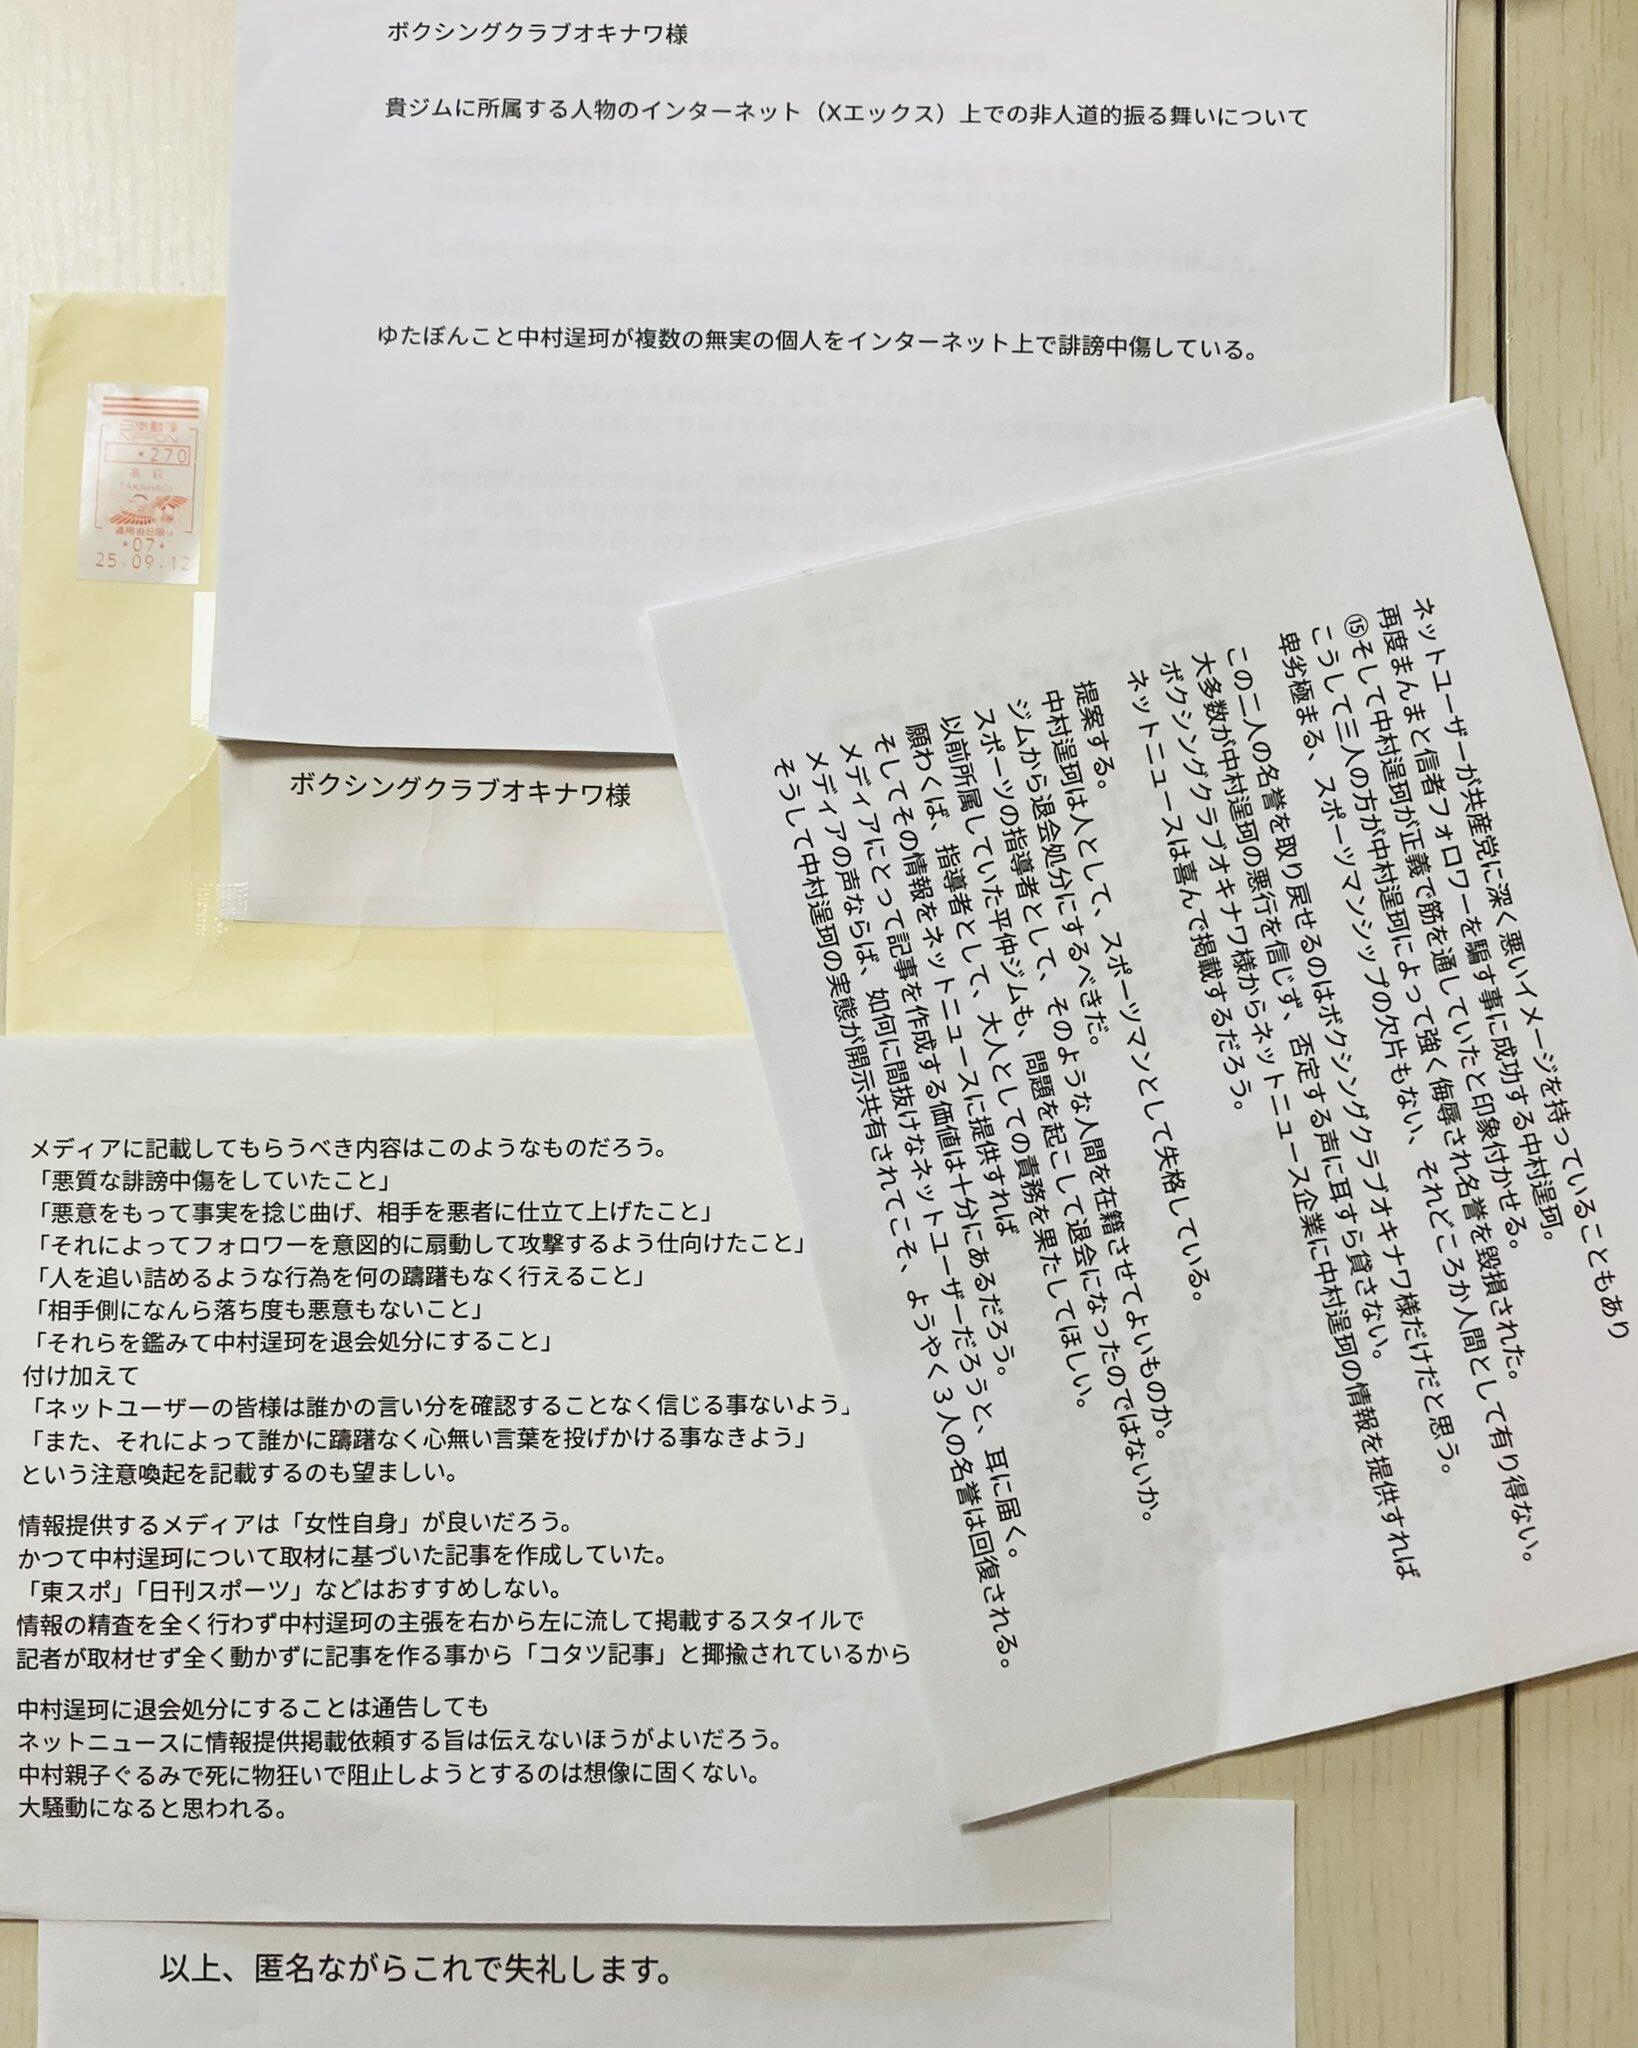 ボクシングクラブオキナワ様
貴ジムに所属する人物のインターネット（Xエックス）上での非人道的振る舞いについて
ゆたぼんこと中村逞珂が複数の無実の個人をインターネット上で誹謗中傷している。
日本郵便
NIPPON
*270
高萩
TAKAHAGI
適用当日限り
*07*
25.09.12
ボクシングクラブオキナワ様
ネットユーザーが共産党に深く悪いイメージを持っていることもあり
再度まんまと信者フォロワーを騙す事に成功する中村逞珂。
⑮そして中村逞珂が正義で筋を通していたと印象付かせる。
こうして三人の方が中村逞珂によって強く侮辱され名誉を毀損された。
卑劣極まる、スポーツマンシップの欠片もない、それどころか人間として有り得ない。
この二人の名誉を取り戻せるのはボクシングクラブオキナワ様だけだと思う。
大多数が中村逞珂の悪行を信じず、否定する声に耳すら貸さない。
ボクシングクラブオキナワ様からネットニュース企業に中村逞珂の情報を提供すれば
ネットニュースは喜んで掲載するだろう。
提案する。
中村逞珂は人として、スポーツマンとして失格している。
ジムから退会処分にするべきだ。
スポーツの指導者として、そのような人間を在籍させてよいものか。
以前所属していた平仲ジムも、問題を起こして退会になったのではないか。
願わくば、指導者として、大人としての責務を果たしてほしい。
そしてその情報をネットニュースに提供すれば
メディアにとって記事を作成する価値は十分にあるだろう。
メディアの声ならば、如何に間抜けなネットユーザーだろうと、耳に届く。
そうして中村逞珂の実態が開示共有されてこそ、ようやく３人の名誉は回復される。
メディアに記載してもらうべき内容はこのようなものだろう。
「悪質な誹謗中傷をしていたこと」
「悪意をもって事実を捻じ曲げ、相手を悪者に仕立て上げたこと」
「それによってフォロワーを意図的に扇動して攻撃するよう仕向けたこと」
「人を追い詰めるような行為を何の躊躇もなく行えること」
「相手側になんら落ち度も悪意もないこと」
「それらを鑑みて中村逞珂を退会処分にすること」
付け加えて
「ネットユーザーの皆様は誰かの言い分を確認することなく信じる事ないよう」
「また、それによって誰かに躊躇なく心無い言葉を投げかける事なきよう」
という注意喚起を記載するのも望ましい。
情報提供するメディアは「女性自身」が良いだろう。
かつて中村逞珂について取材に基づいた記事を作成していた。
「東スポ」「日刊スポーツ」などはおすすめしない。
情報の精査を全く行わず中村逞珂の主張を右から左に流して掲載するスタイルで
記者が取材せず全く動かずに記事を作る事から「コタツ記事」と揶揄されているから
中村逞珂に退会処分にすることは通告しても
ネットニュースに情報提供掲載依頼する旨は伝えないほうがよいだろう。
中村親子ぐるみで死に物狂いで阻止しようとするのは想像に固くない。
大騒動になると思われる。
以上、匿名ながらこれで失礼します。